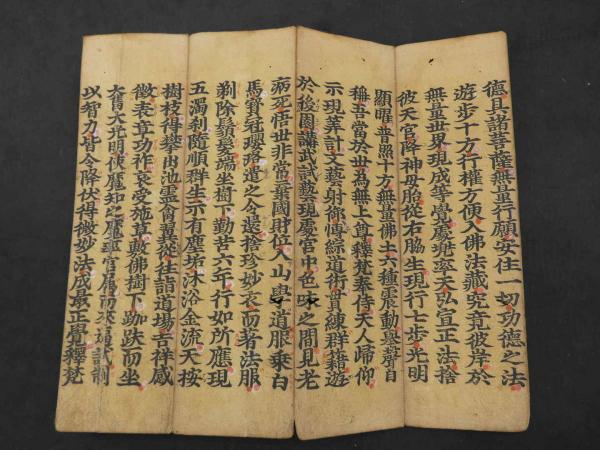 德具諸菩薩無量行願安住一切功德之法
遊步十方行權方便入佛法藏究竟彼岸於
無量世界現成等覺處兜率天弘宣正法捨
彼天宮降神母胎從右脇生現行七步光明
顯曜普照十方無量佛土六種震動舉聲自
稱吾當於世為無上尊釋梵奉侍天人歸仰
示現筭計文藝射御博綜道術貫練群籍遊
於後園講武試藝現處宮中色味之間見老
病死悟世非常棄國財位入山學道服乘白
馬寶冠瓔珞遣之令還捨珍妙衣而著法服
剃除鬚髮端坐樹下勤苦六年行如所應現
五濁剎隨順群生示有塵垢沐浴金流天按
樹枝得攀出池靈禽翼從往詣道場吉祥感
徵表章功祚哀受施草敷佛樹下跏趺而坐
奮大光明使魔知之魔率官屬而來逼試制
以智力皆令降伏得微妙法成最正覺釋梵